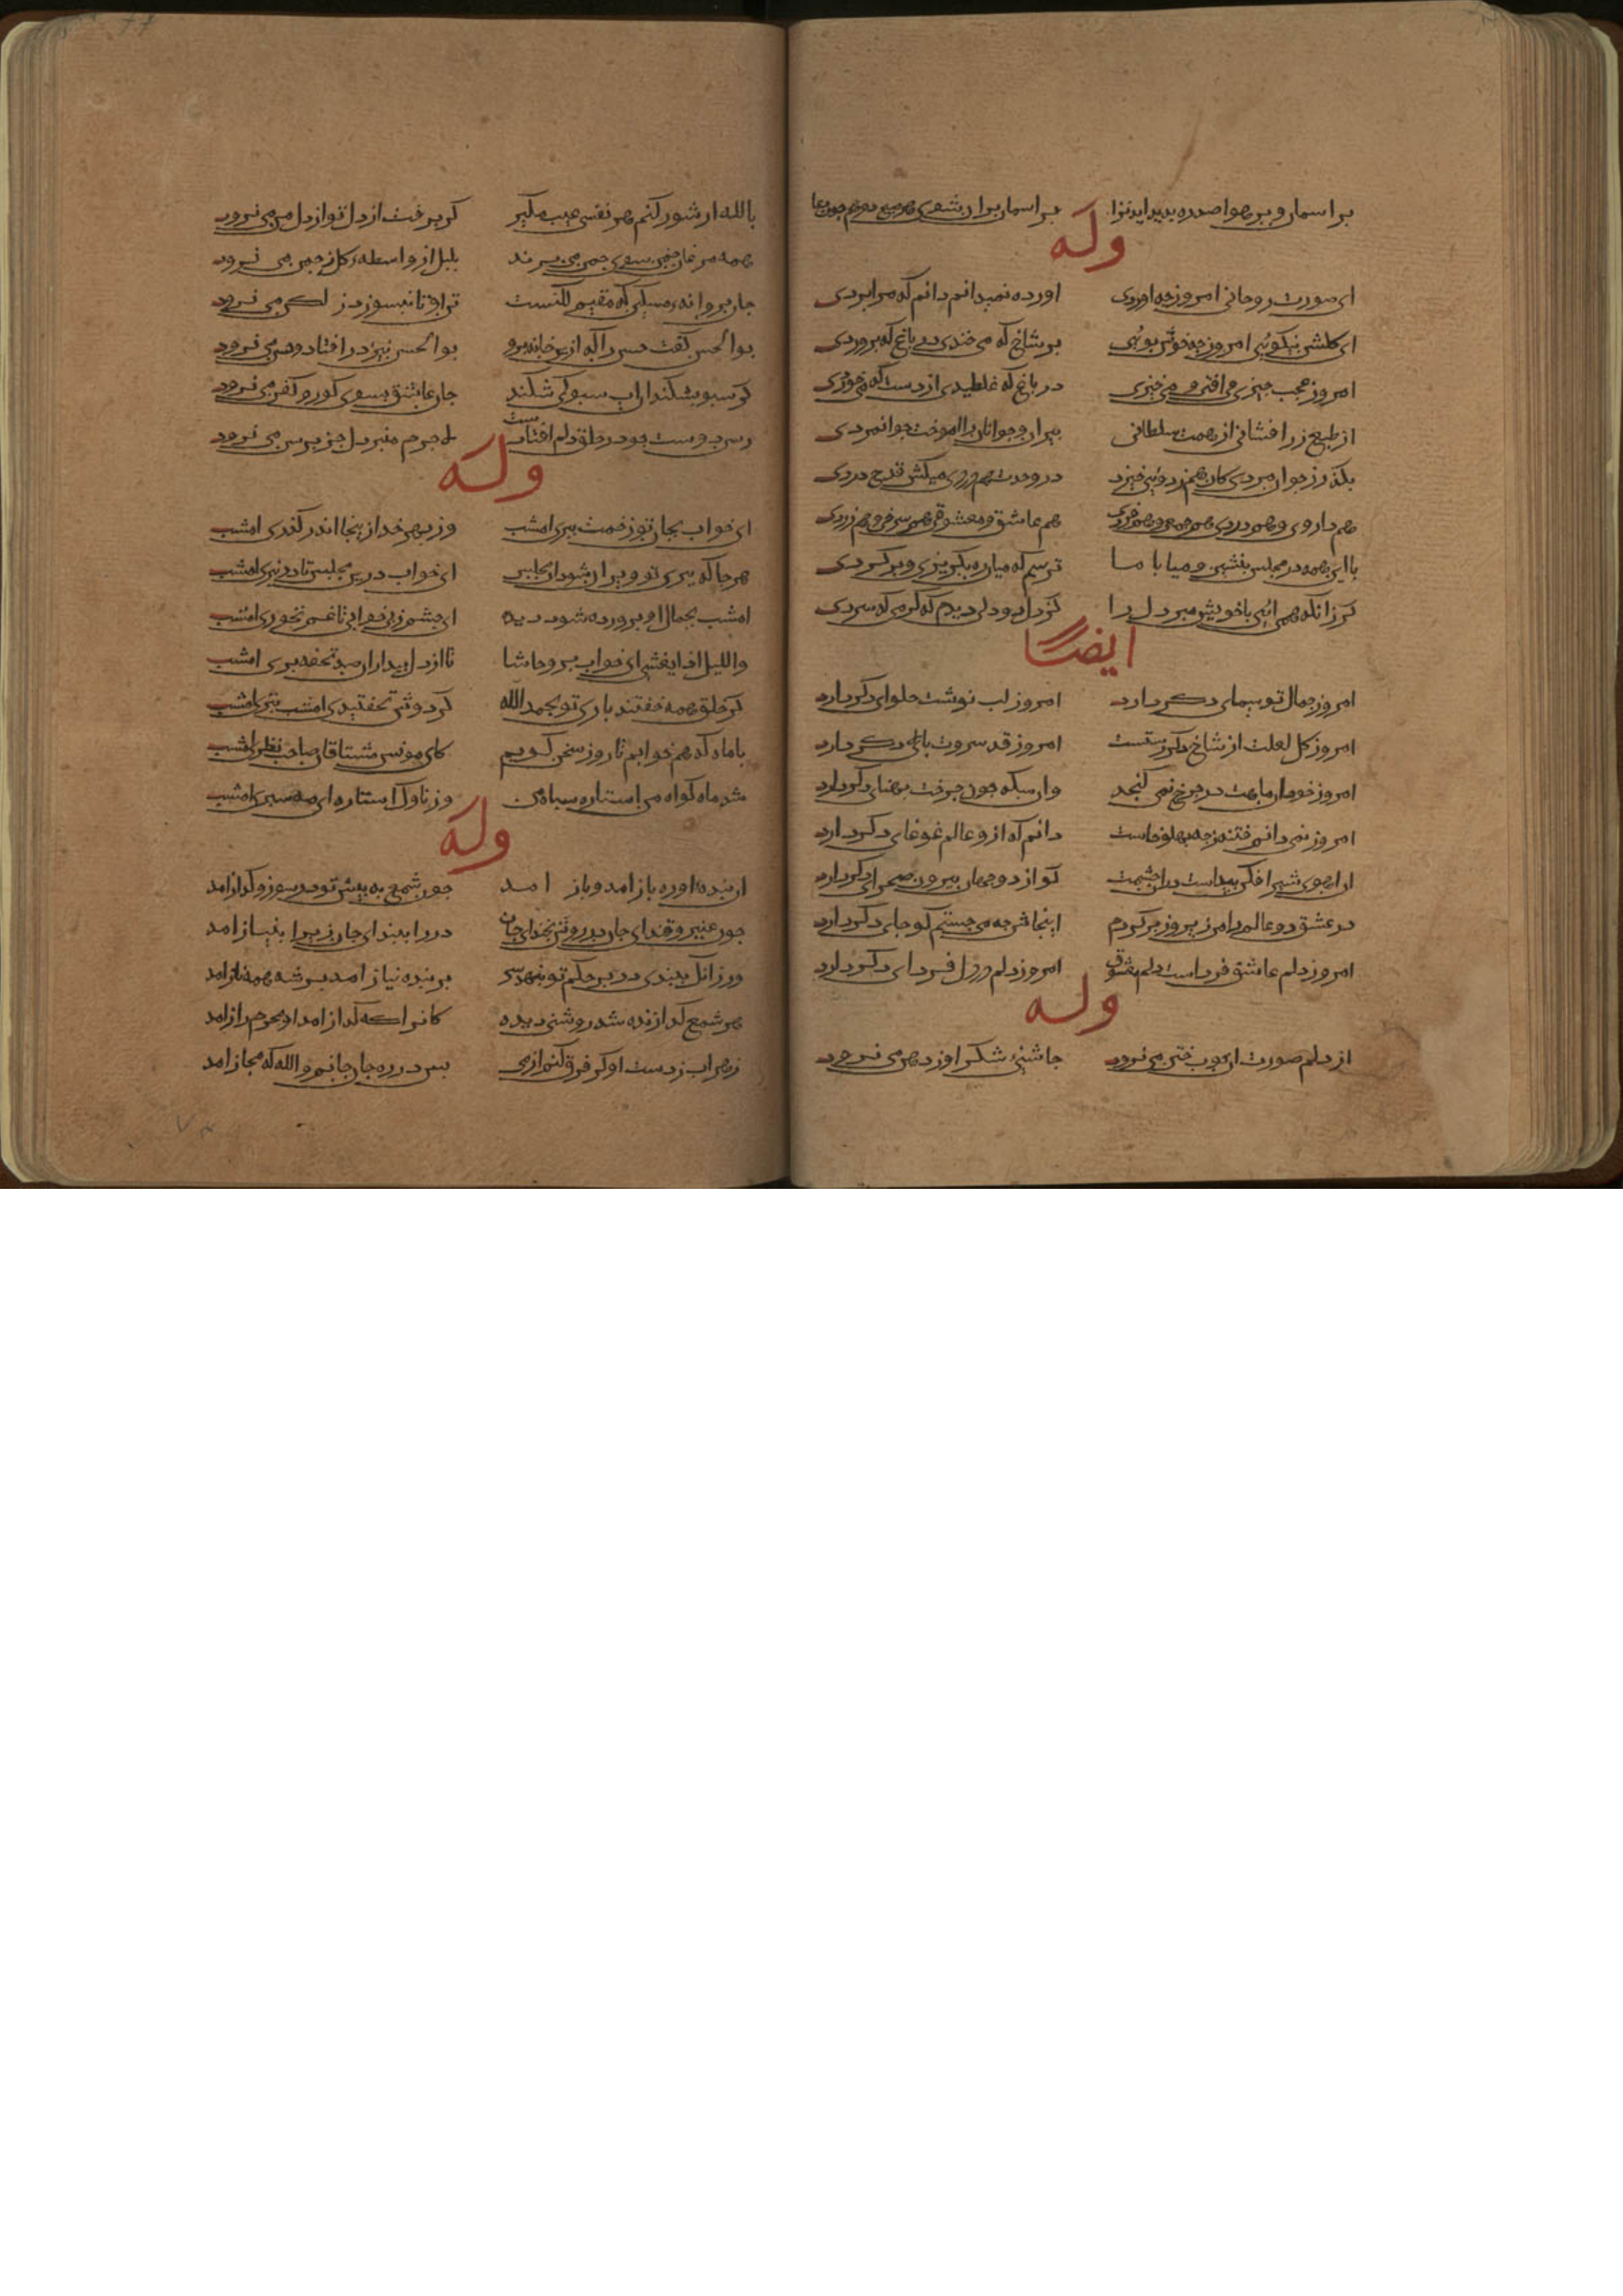 بر اسمان و بر هوا صد ره بدید اید ترا بر اسمان بران شوی هر صبح دم همچون دعا
وله
ای صورت روحانی امروز چه اوردی اورده نمیدانم دانم که مرا بردی
ای کلشن نیکوئی امروز چه خوش بوئی بر شاخ که می خندی در باغ که پروردی
امروز عجب چیزی می افتی و می خیزی در باغ که غلطیدی از دست که می خوردی
از طبع زر افشانی از همت سلطانی پیران و جوانان را اموخت جوانمردی
بکذر ز جوان مردی کان هم ز دوئی خیزد در وحدت هم دردی میکش قدح دردی
هم داروی و هم دردی هم جمعی و هم فردی هم عاشق و معشوقی هم سرخی و هم زردی
با این همه در مجلس بنشین و میا با ما ترسم که میان ره بکریزی و برکردی
کر زانکه همی ائی با خویش مبر دل را کز دل دو دلی دیدم که کرمی که سردی
ایضا
امروز جمال تو سیمای دکر دارد امروز لب نوشت حلوای دکر دارد
امروز کل لعلت از شاخ دکر رستست امروز قد سروت بالای دکر دارد
امروز خود ان ماهت در چرخ نمی کنجد وان سکه چون چرخت پهنای دکر دارد
امروز نمی دانم فتنه ز چه پهلو خاست دانم که ازو عالم غوغای دکر دارد
ان اهوی شیر افکن پیداست در ان چشمت کو از دو جهان بیرون صحرای دکر دارد
در عشق دو عالم را من زیر و زبر کردم اینجاش چه می جستم کو جای دکر دارد
امروز دلم عاشق فرداست دلم معشوق امروز دلم در دل فردای دکر دارد
وله
از دلم صورت ان خوب ختن می نرود چاشنی شکر او ز دهن می نرود
بالله ار شور کنم هر نفسی عیب مکیر کر برفت از دل تو از دل من می نرود
همه مرغان چمن سوی چمن می پرند بلبل از واسطه کل ز چمن می نرود
جان پروانه مسکین که مقیم لکنست تن او تا بنسوزد ز لکن می نرود
بوالحسن کفت حسن را که ازین خانه برو بوالحسن نیز در افتاد و حسن می نرود
کر سبو بشکند ان اب سبو کی شکند جان عاشق بسوی کور و کفن می نرود
رسن دوست چو در حلق دلم افتادست لاجرم چنبر دل جز برسن می نرود
وله
ای خواب بجان تو زحمت ببری امشب وز بهر خدا زینجا اندر کذری امشب
هر جا که پری تو ویران شود ان مجلس ای خواب درین مجلس تا در نپری امشب
امشب بجمال او پرورده شود دیده ای چشم ز بی خوابی تا غم نخوری امشب
واللیل اذا یغشی ای خواب برو حاشا تا از دل بیداران صد تحفه بری امشب
کر خلق همه خفتند باری تو بحمدالله کر دوش نخفتیدی امشب بتری امشب
با ماه که هم خوابم تا روز سخن کویم کای مونس مشتاقان صاحب نظری امشب
شد ماه کواه من استاره سپاه من وز ناوک استاره ای مه سپری امشب
وله
ان بنده اواره باز امد و باز امد چون شمع به پیش تو در سوز و کداز امد
چون عنبر و قند ای جان در روش بخند ای جان در را بمبند ای جان زیرا بنیاز امد
ور زانک ببندی در بر حکم تو بنهد سر بر بنده نیاز امد بر شه همه ناز امد
هر شمع کدازنده شد روشنی دیده کانرا که کداز امد او محرم راز امد
زهراب ز دست او کر فرق کنم از می پس در ره جان جانم والله که مجاز امد